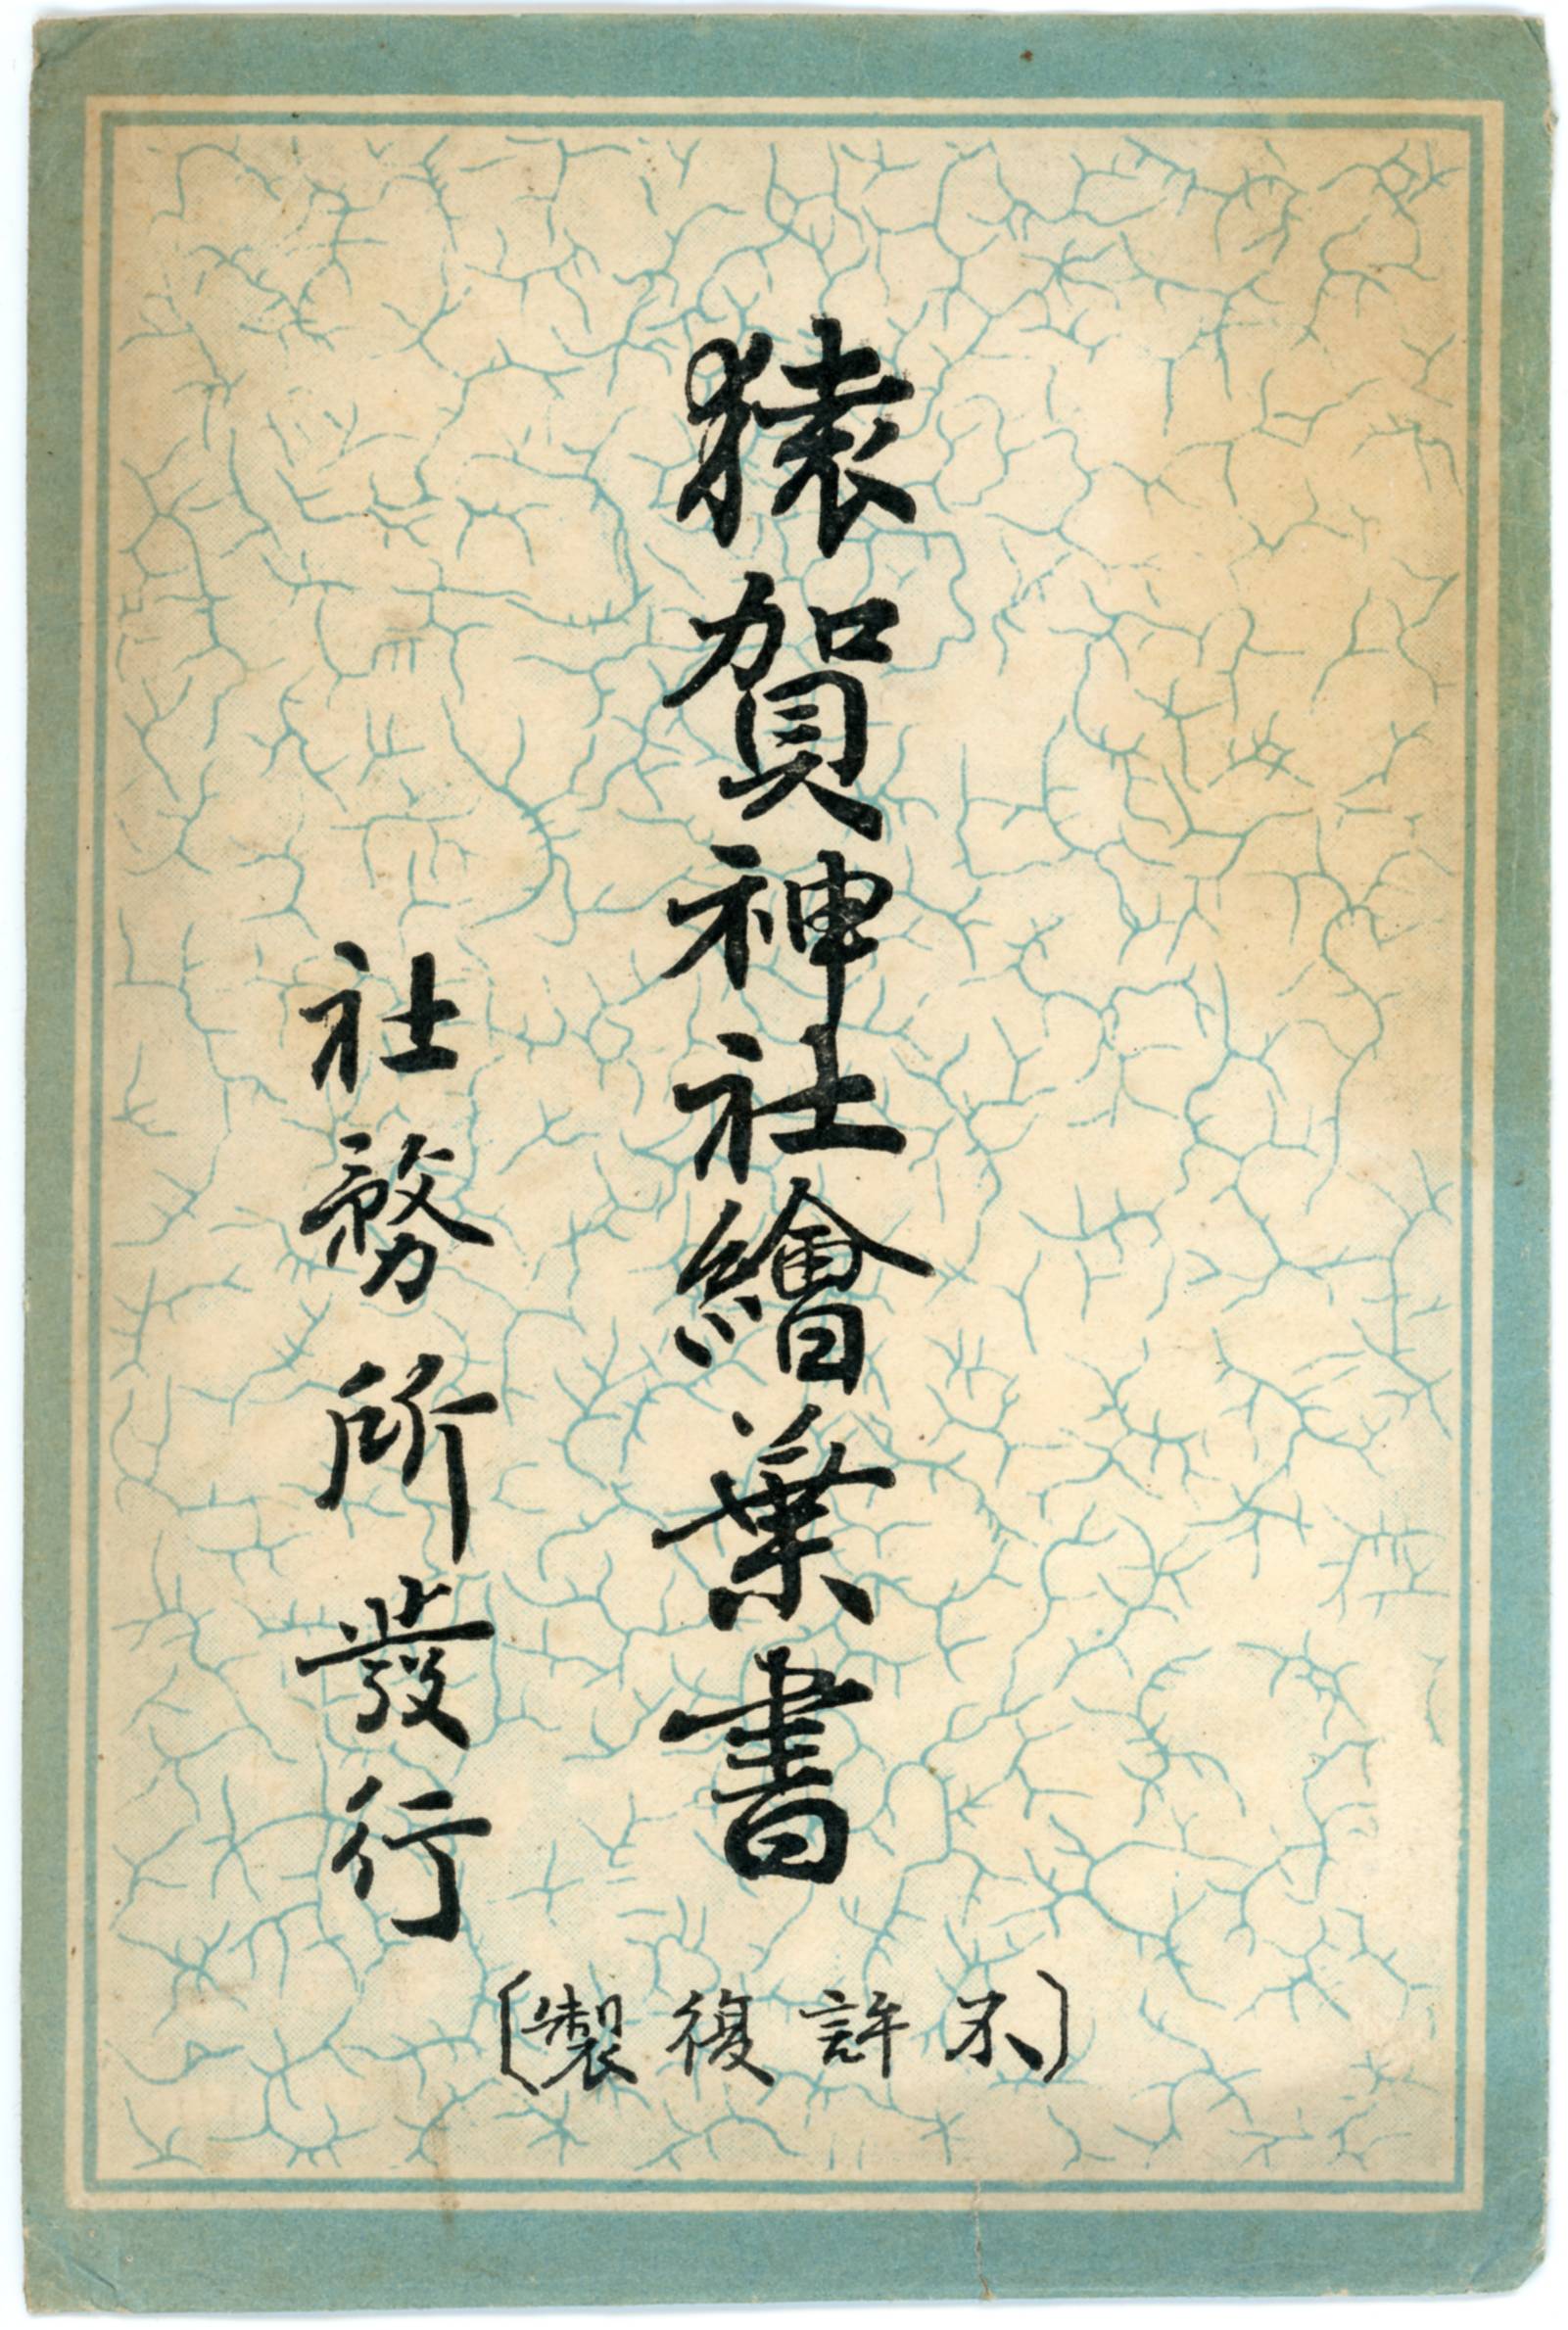 猿賀神社繪葉書
社務所發行
(不許復製)